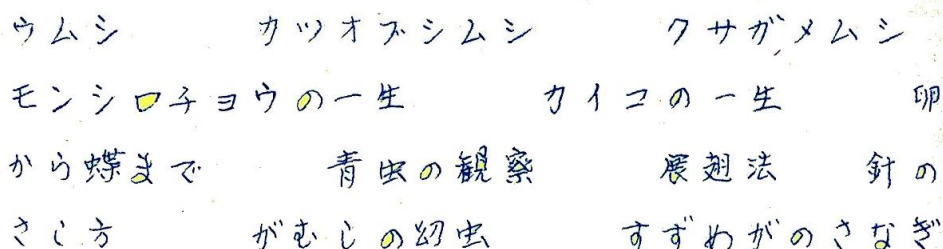 ウムシ　カツオブシムシ　クサガメムシ
モンシロチョウの一生　カイコの一生　卵
から蝶まで　青虫の観察　展翅法　針の
さし方　がむしの幼虫　すずめがのさなぎ